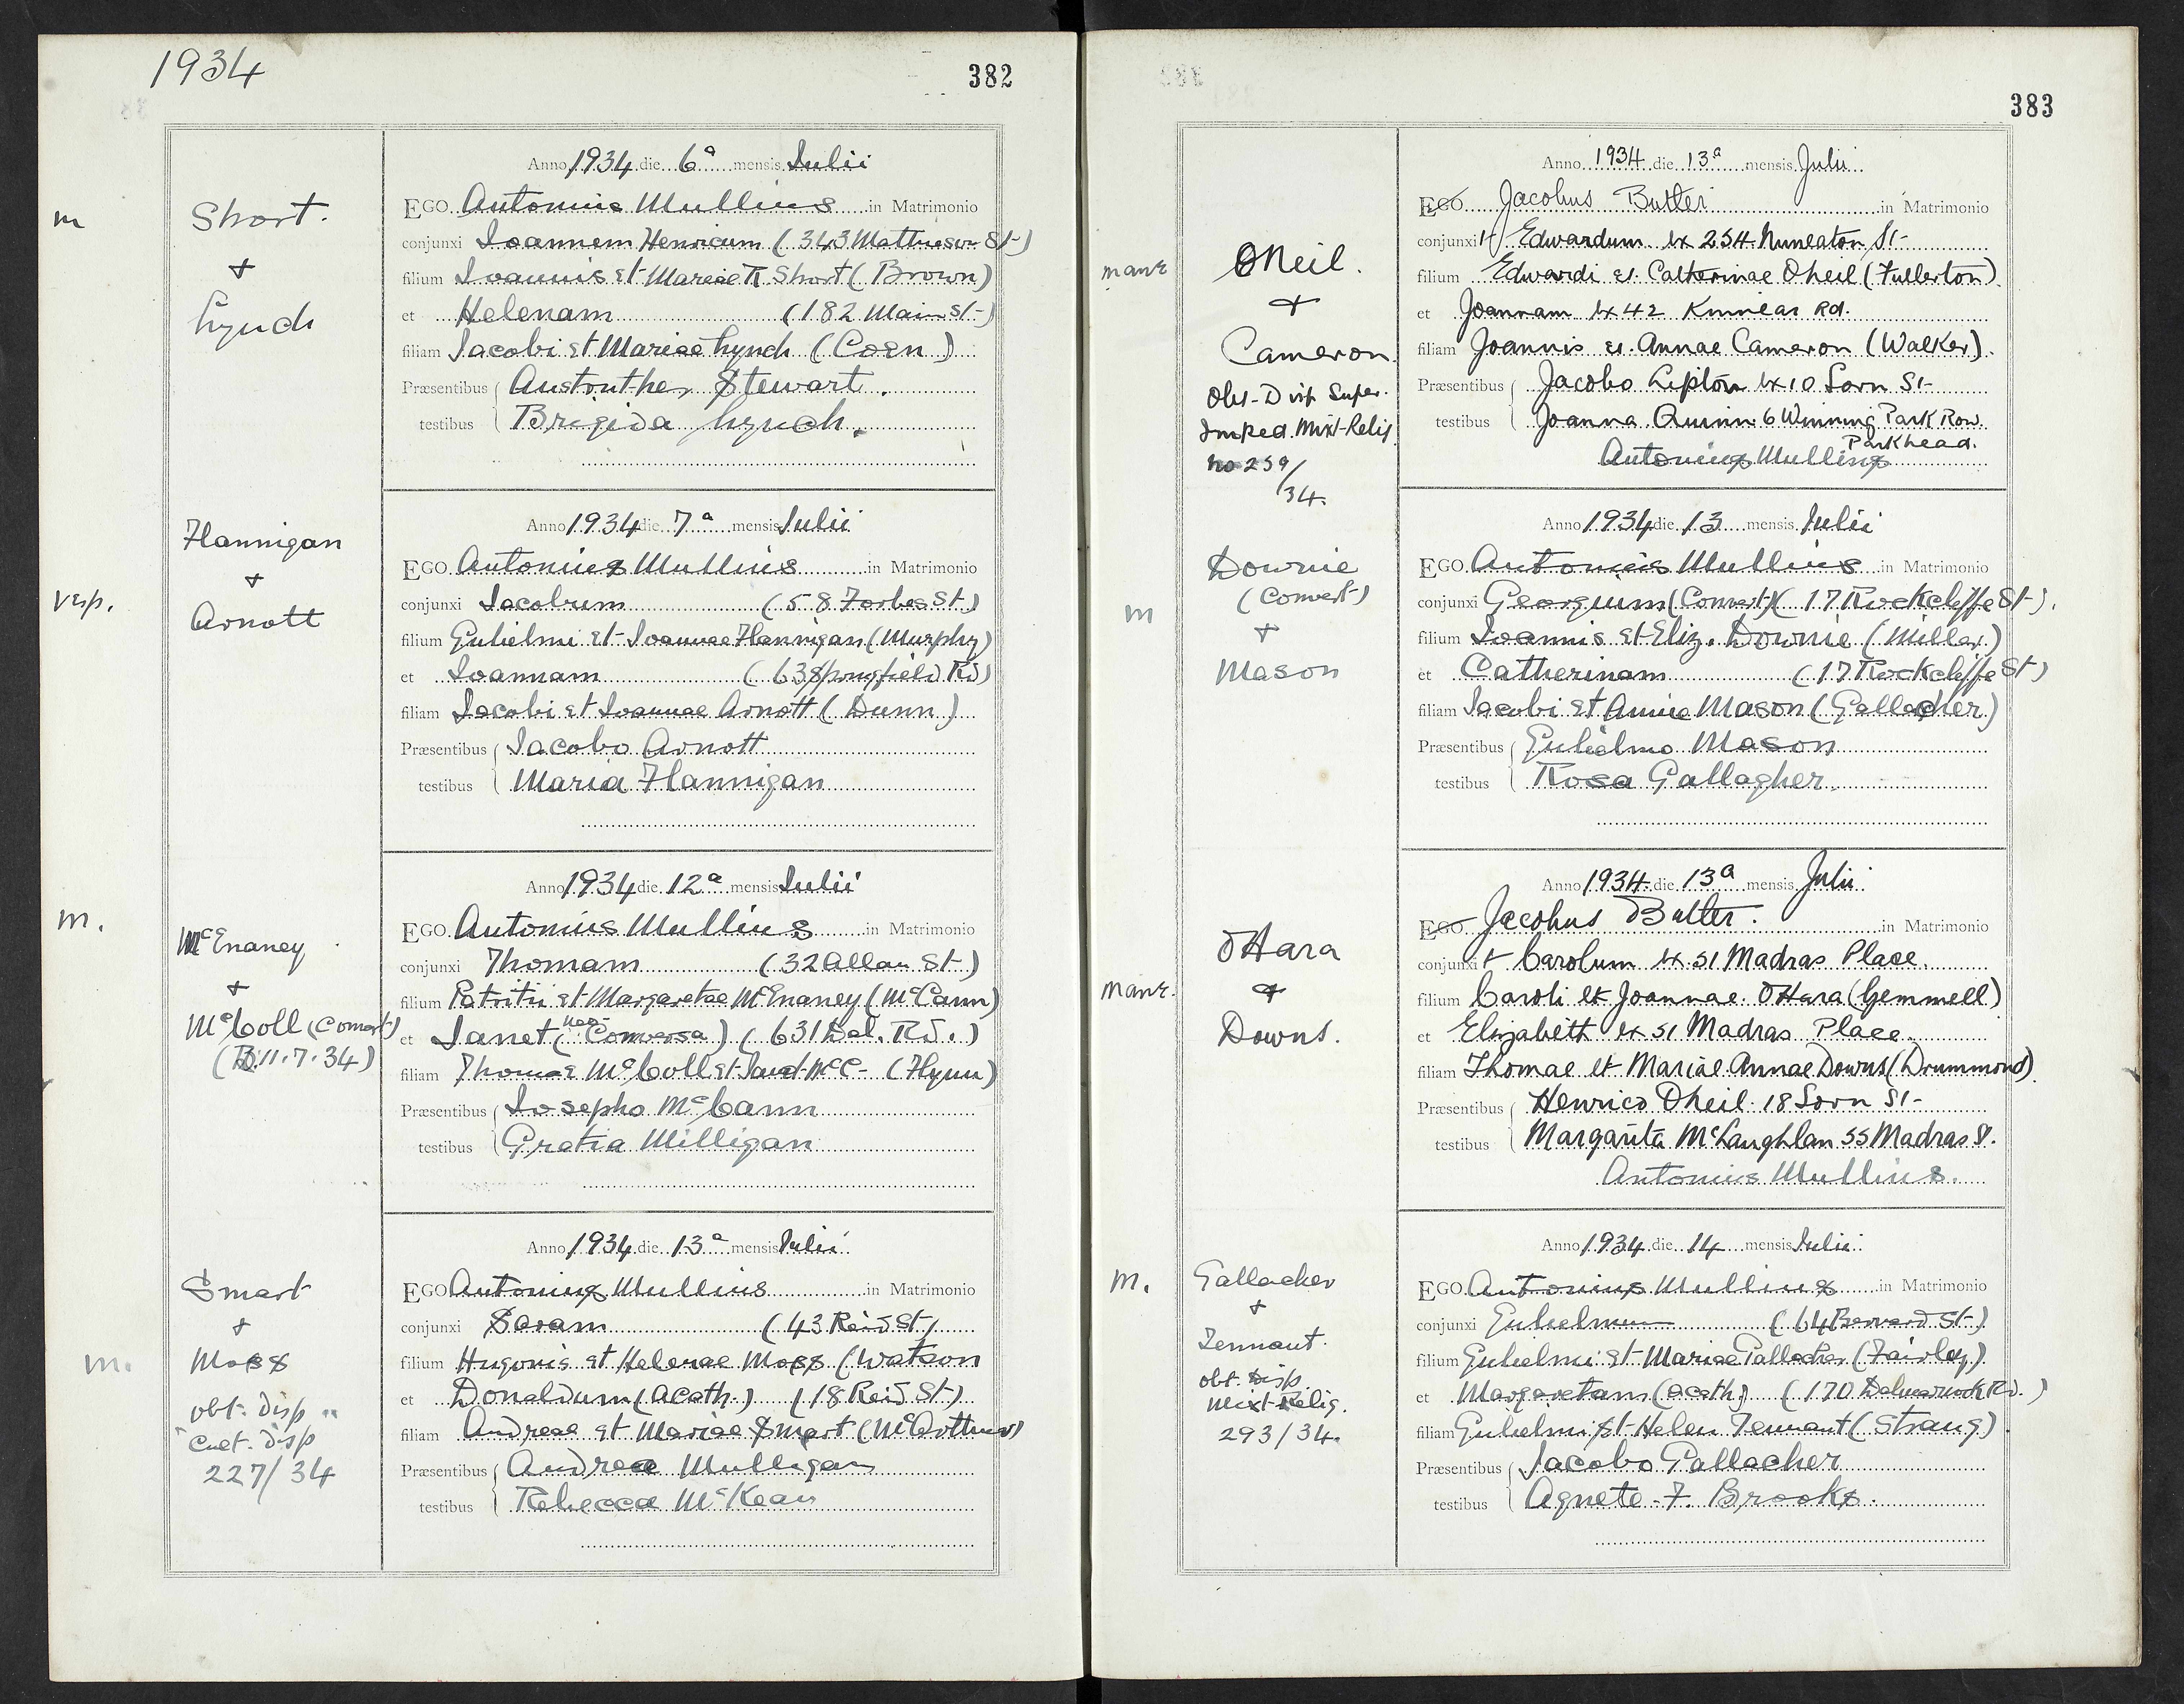 1934
382
m
Short.
+
Lynch
Anno 1934 die 6a mensis Iulii
EGO Antonius Mullins in Matrimonio
conjunxi Ioannem Henricum (343 Mathieson St)
filium Ioannis et Mariae Short (Brown)
et Helenam (182 Main St)
filiam Iacobi et Mariae Lynch (Coen)
Præsentibus Stewart.
testibus Brigida Lynch.
vesp.
Flannigan
+
Arnott
Anno 1934 die 7a mensis Iulii
EGO Antonius Mullins in Matrimonio
conjunxi Iacobum (58 Forbes St)
filium Gulielmi et Ioannae Flannigan (Murphy)
et Ioannam (63 Springfield Rd)
filiam Iacobi et Ioannae Arnott (Dunn)
Præsentibus Iacobo Arnott
testibus Maria Flannigan
m.
McEnaney
+
McColl (Convert)
(B. 11.7.34)
Anno 1934 die 12a mensis Iulii
EGO Antonius Mullins in Matrimonio
conjunxi Thomam (32 Allan St)
filium Patritii et Margaretae McEnaney (McCann)
et Janet (neo-Conversa) (631 Dal. Rd.)
filiam Thomae McColl et Janet McC- (Flynn)
Præsentibus Iosepho McCann
testibus Gratia Milligan
m.
Smart
+
Moss
obt. disp
Cult. disp
227/34
Anno 1934 die 13a mensis Iulii
EGO Antonius Mullins in Matrimonio
conjunxi Saram (43 Reid St)
filium Hugonis et Helenae Moss (Watson
et Donaldum (Acath.) (18 Reid St)
filiam Andreae et Mariae Smart (McArthur)
Præsentibus Andrea Mulligan
testibus Rebecca McKean
383
mane
O'Neil.
+
Cameron.
Obt- Disp Super.
Imped. Mixt-Relig
no 259/
34.
Anno 1934 die 13a mensis Julii
EGO Jacobus Butler in Matrimonio
conjunxit Edwardum ex 254 Nuneaton St-
filium Edwardi et Catherinae O'Neil (Fullerton)
et Joannam ex 42 Kinnear Rd.
filiam Joannis et Annae Cameron (Walker).
Præsentibus Jacobo Lipton ex 10 Sorn St-
testibus Joanna Quinn 6 Winning Park Row.
Parkhead.
Antonius Mullins
m
Downie
(Convert)
+
Mason
Anno 1934 die 13 mensis Iulii
EGO Antonius Mullins in Matrimonio
conjunxi Georgium (Convert) (17 Rockcliffe St).
filium Ioannis et Eliz. Downie (Millar)
et Catherinam (17 Rockcliffe St)
filiam Iacobi et Annie Mason (Gallacher)
Præsentibus Gulielmo Mason
testibus Rosa Gallagher.
mane.
O'Hara
+
Downs.
Anno 1934 die 13a mensis Julii
EGO Jacobus Butler. in Matrimonio
conjunxit Carolum ex 51 Madras Place.
filium Caroli et Joannae O'Hara (Gemmell)
et Elizabeth ex 51 Madras Place.
filiam Thomae et Mariae Annae Downs (Drummond)
Præsentibus Henrico O'Neil 18 Sorn St-
testibus Margarita McLaughlan 55 Madras St.
Antonius Mullins.
m.
Gallacher
+
Tennant.
obt. Disp
Mixt Relig.
293/34.
Anno 1934 die 14 mensis Iulii
EGO Antonius Mullins in Matrimonio
conjunxi Gulielmum (64 Bernard St)
filium Gulielmi et Mariae Gallacher (Fairley)
et Margaretam (acath) (170 Dalmarnock Rd.)
filiam Gulielmi et Helen Tennant (Strang).
Præsentibus Jacobo Gallacher
testibus Agnete. F. Brooks.